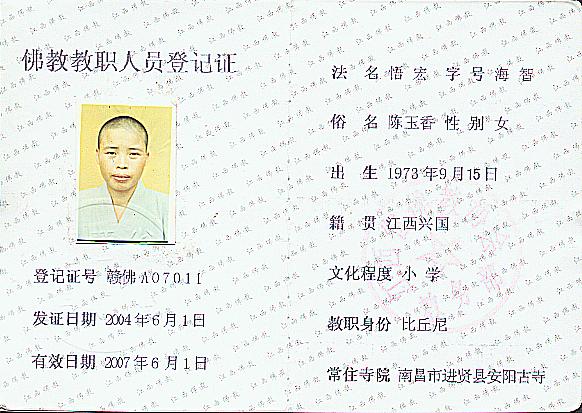 佛教教职人员登记证
登记证号 赣佛A07011
发证日期 2004年6月1日
有效日期 2007年6月1日
法 名 悟宏 字号 海智
俗 名 陈玉香 性别 女
出 生 1973年9月15日
籍 贯 江西兴国
文化程度 小学
教职身份 比丘尼
常住寺院 南昌市进贤县安阳古寺